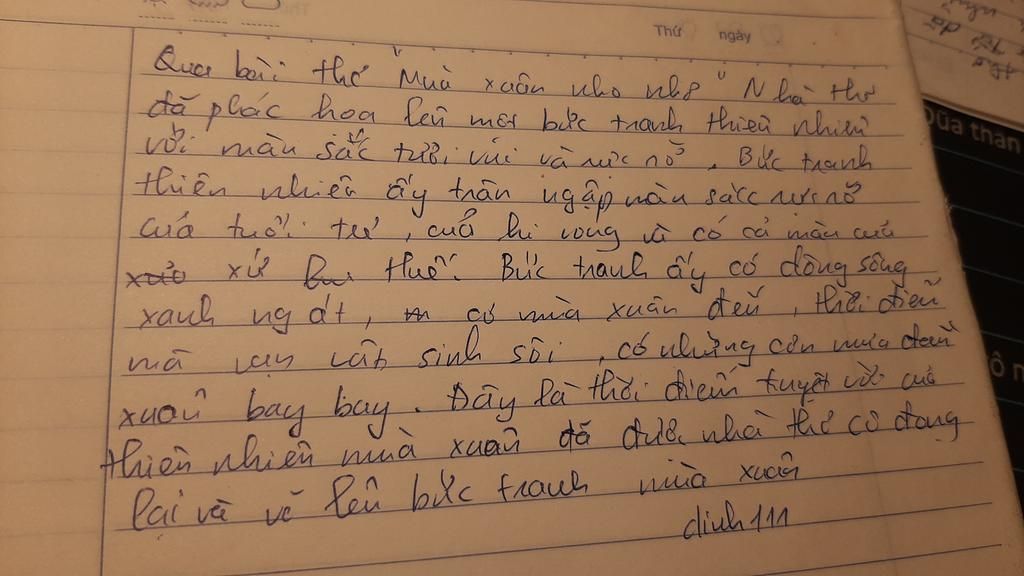 Thứ ngày
Qua bài thơ "Mùa xuân nho nhỏ" Nhà thơ
đã phác hoạ lên một bức tranh thiên nhiên
với màn sắc tươi vui và rực rỡ. Bức tranh
thiên nhiên ấy tràn ngập màn sắc rực rỡ
của tuổi trẻ, của hi vọng và có cả màn của
xứ Huế. Bức tranh ấy có dòng sông
xanh ngát, có mùa xuân đến, thời điểm
mà vạn vật sinh sôi, có những cơn mưa đầu
xuân bay bay. Đây là thời điểm tuyệt vời của
thiên nhiên mùa xuân đã được nhà thơ cô đọng
lại và vẽ lên bức tranh mùa xuân
dinh111
Đũa than